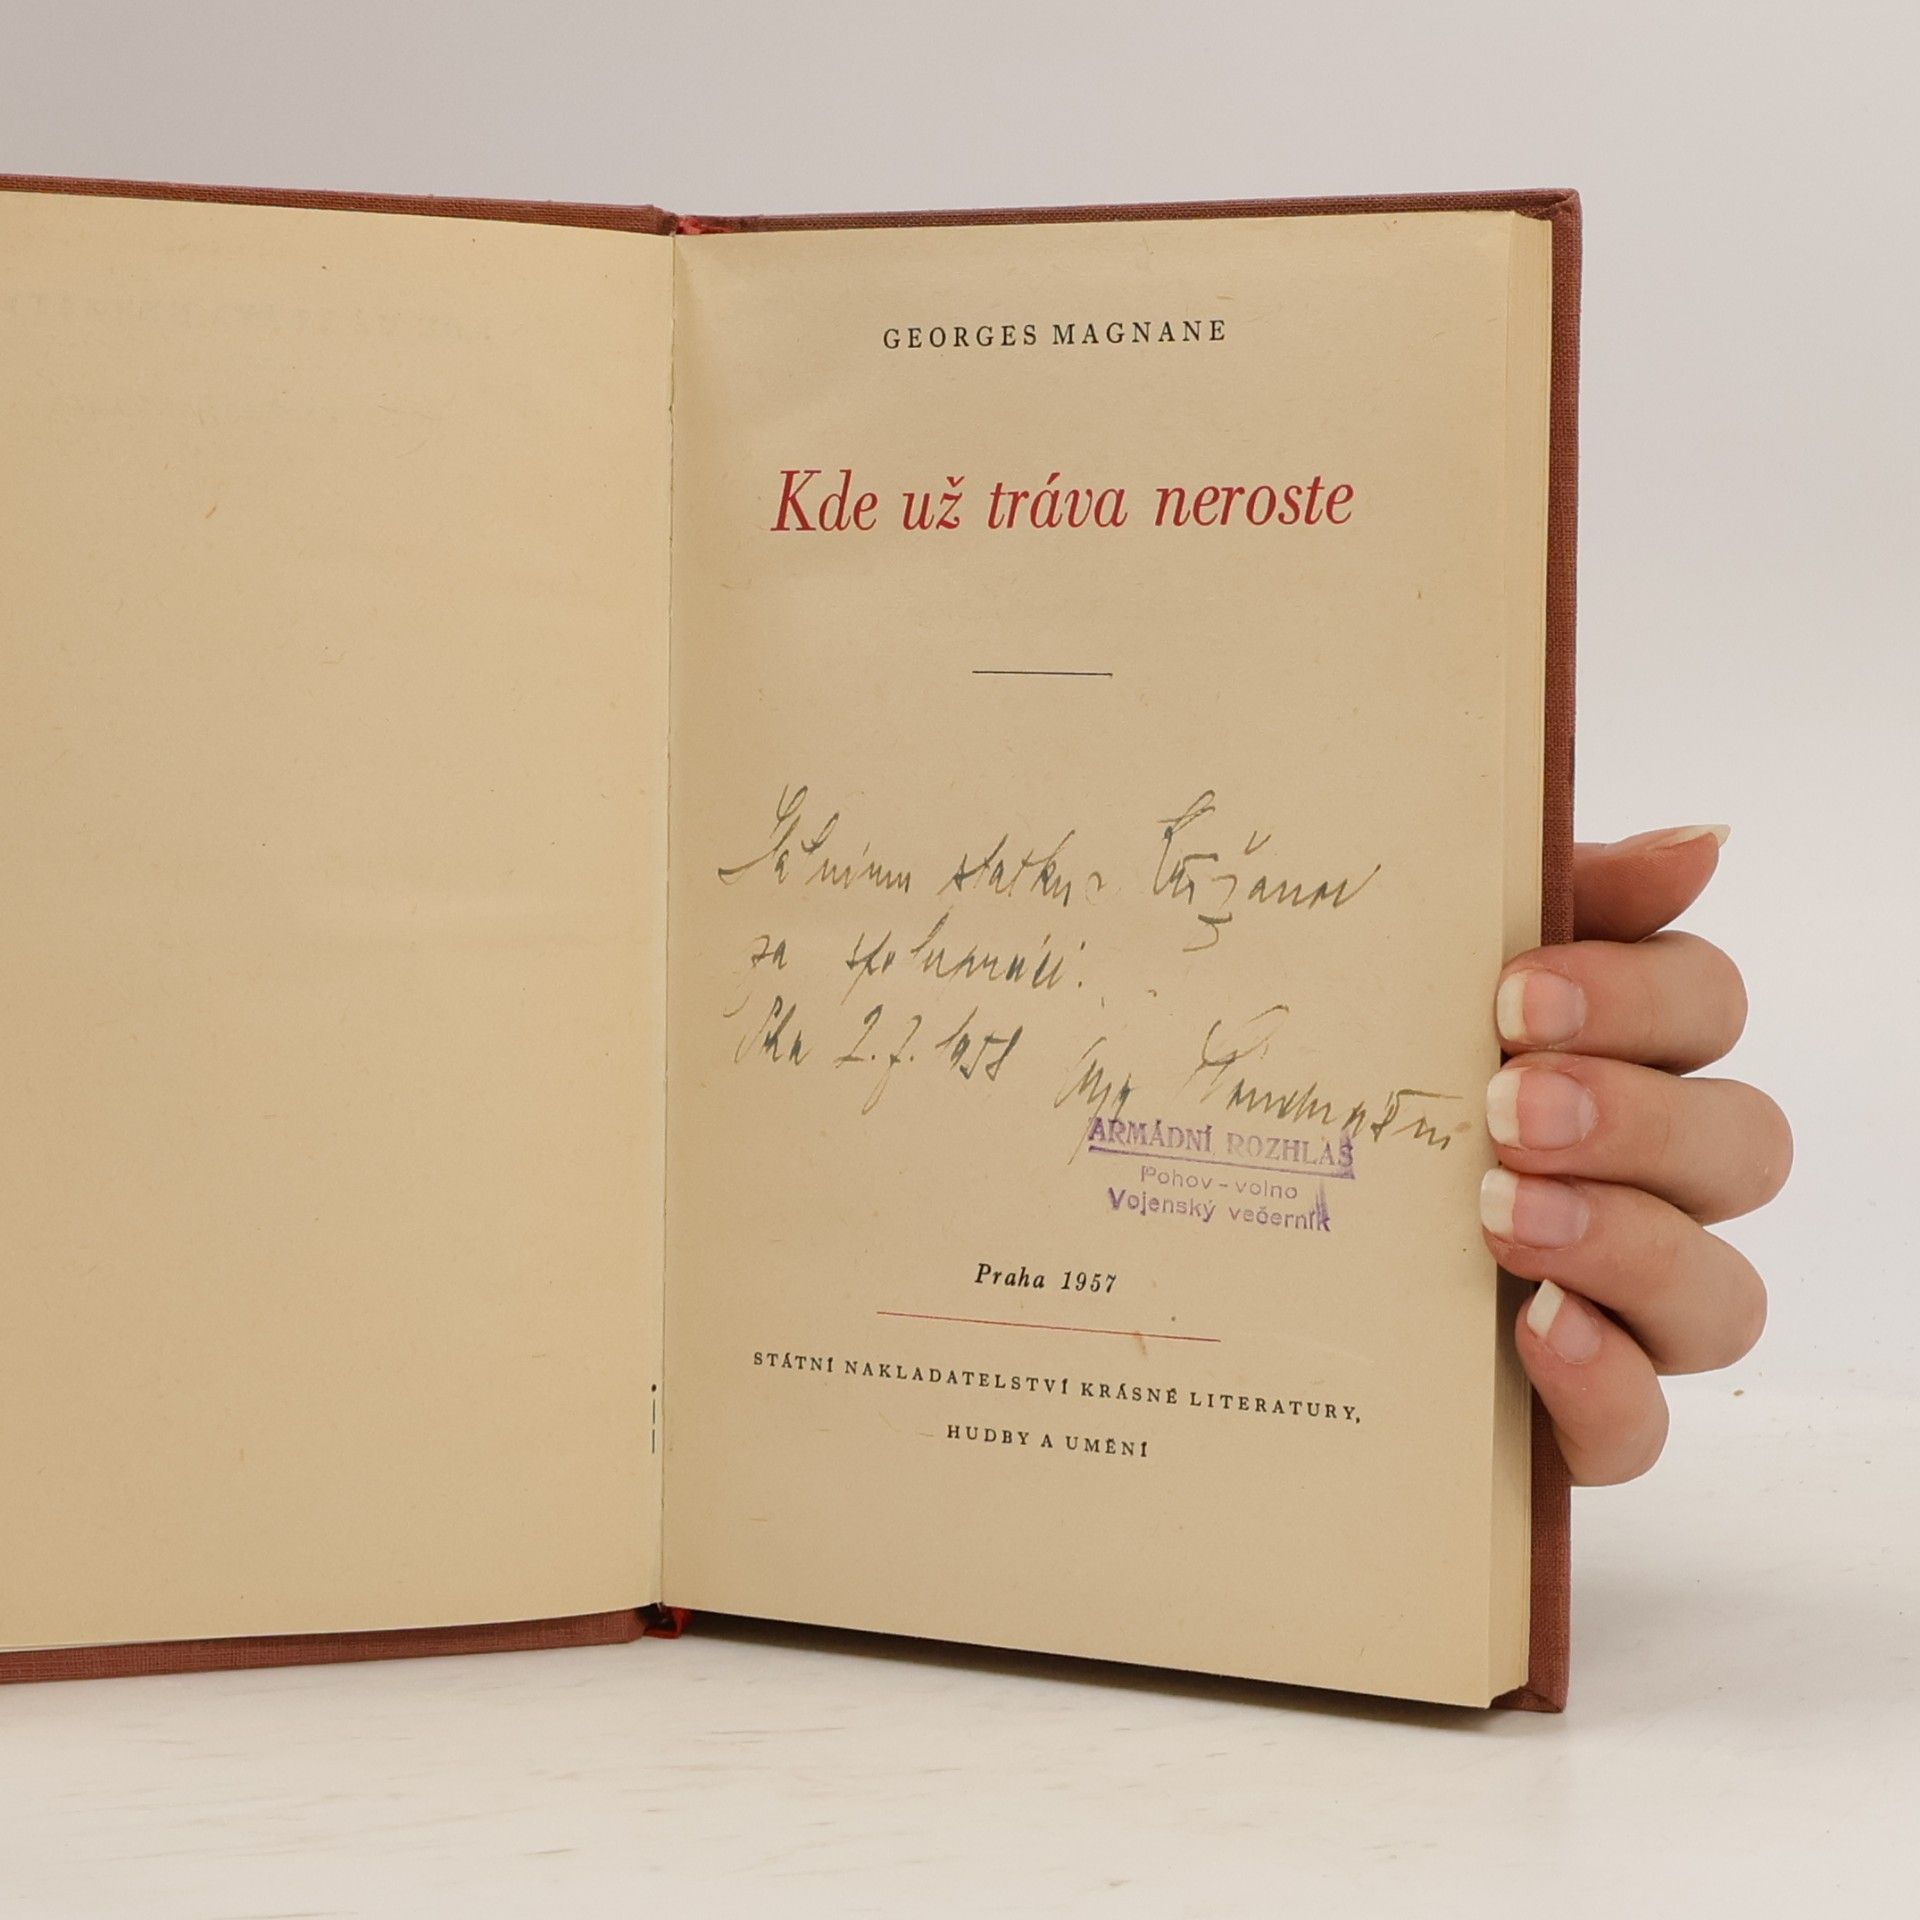 GEORGES MAGNANE
Kde už tráva neroste
Státnímu statku
za spolupráci.
Pha 2. 7. 1958
ARMÁDNÍ ROZHLAS
Pohov - volno
Vojenský večerník
Praha 1957
STÁTNÍ NAKLADATELSTVÍ KRÁSNÉ LITERATURY,
HUDBY A UMĚNÍ